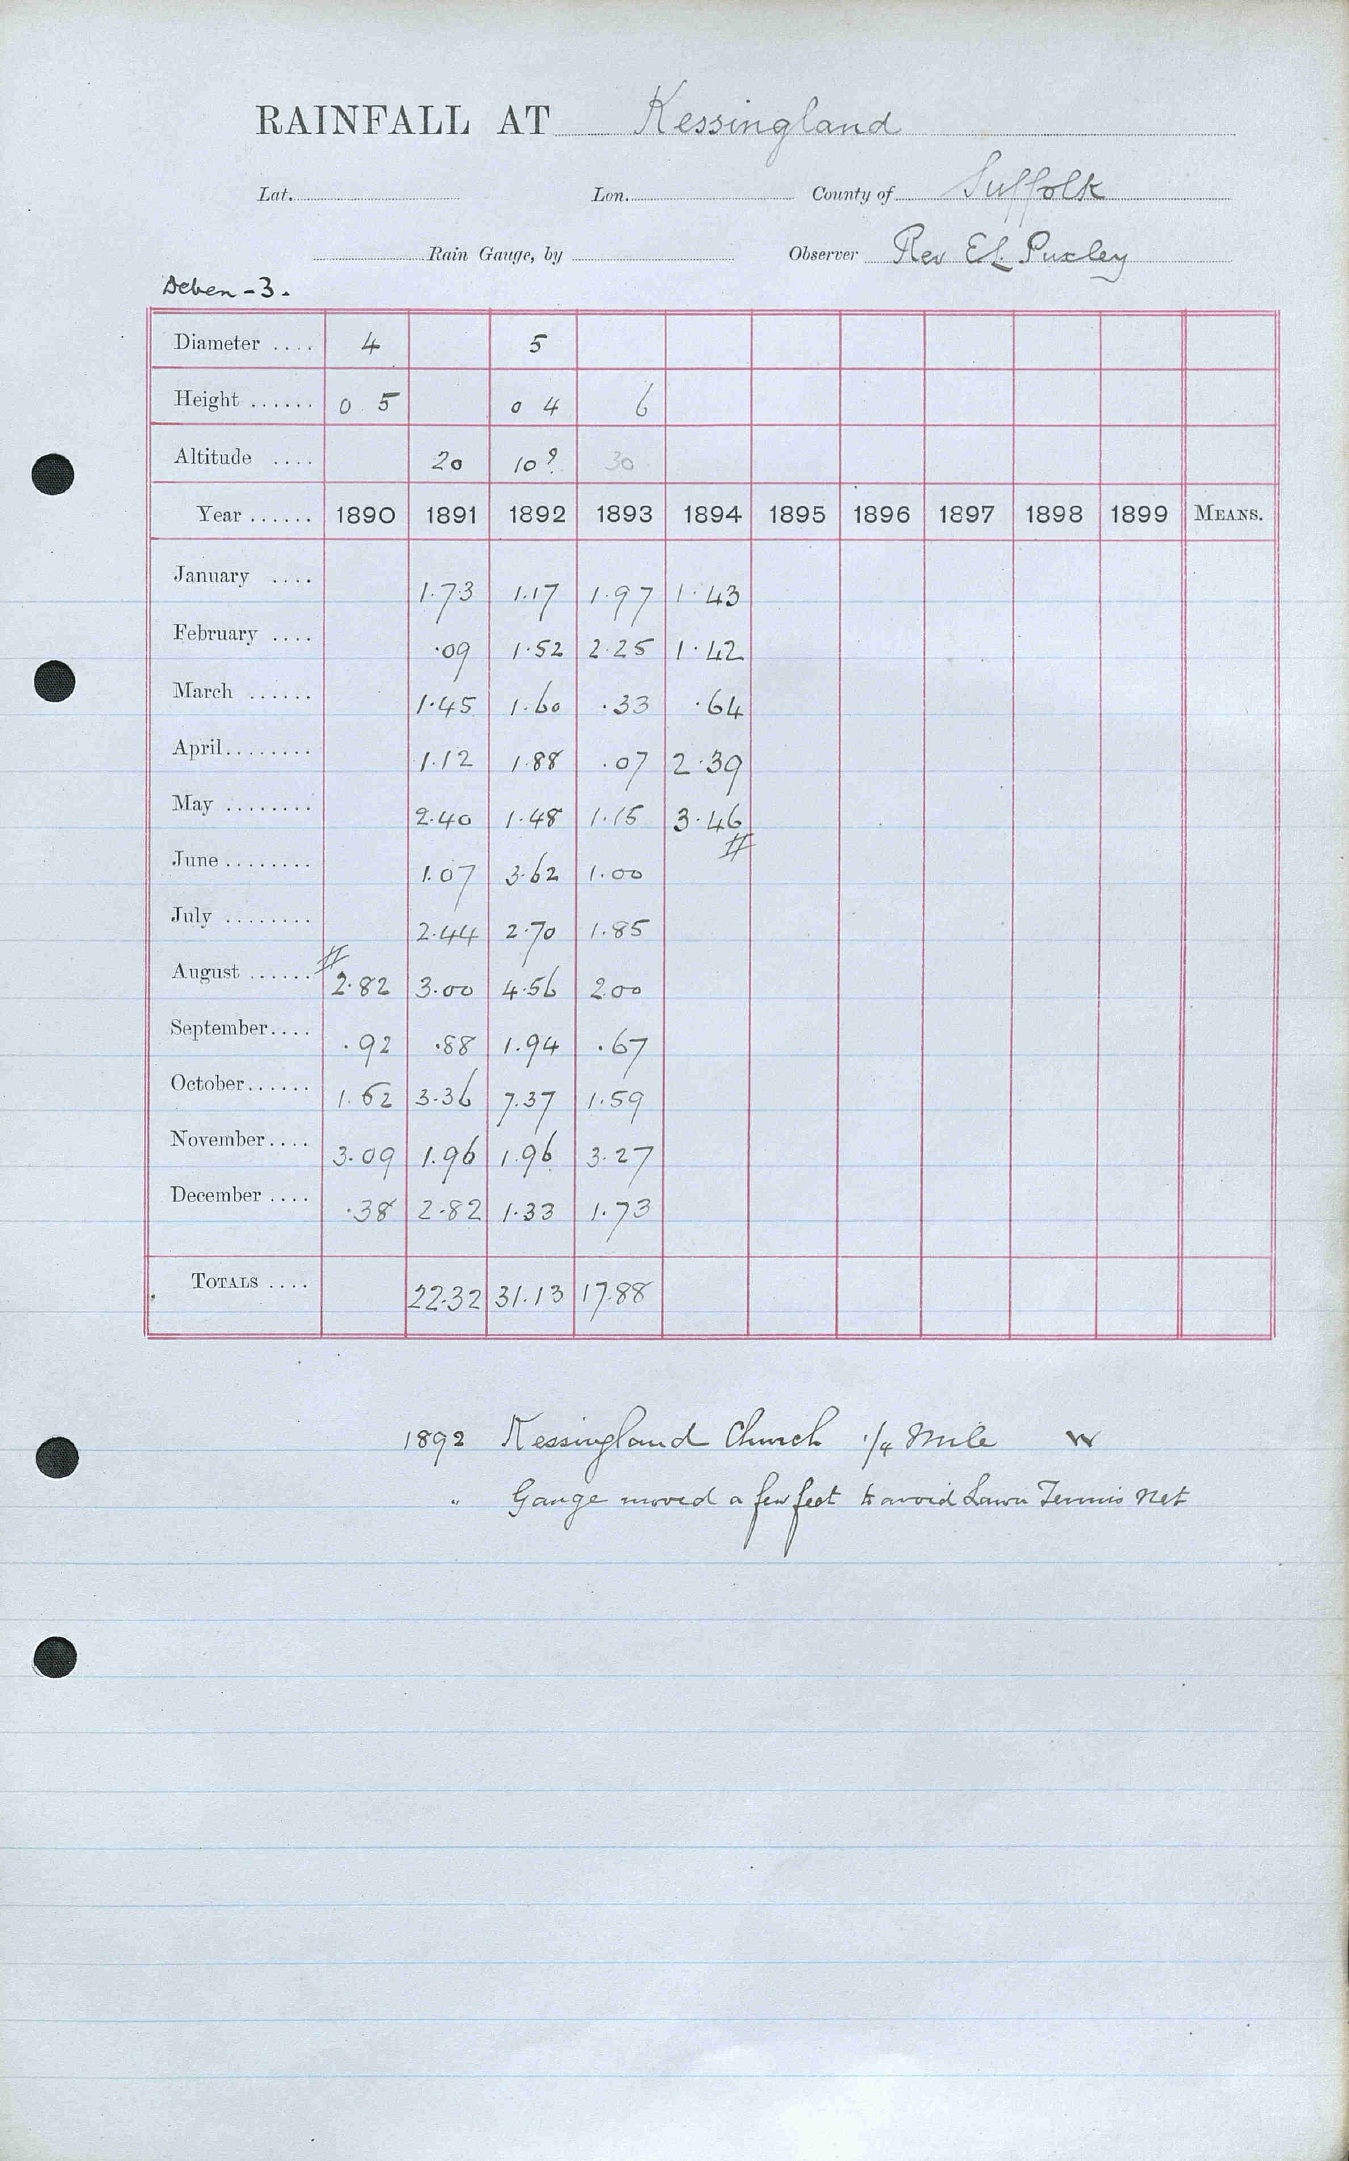 RAINFALL AT Kessingland
Lat. Lon. County of Suffolk
Rain Gauge, by Observer Rev E.L. Puxley
Deben - 3.
Diameter .... 4 5
Height ...... 0 5 0 4 6
Altitude .... 20 10? 30
Year ...... 1890 1891 1892 1893 1894 1895 1896 1897 1898 1899 MEANS.
January .... 1.73 1.17 1.97 1.43
February .... .09 1.52 2.25 1.42
March ...... 1.45 1.60 .33 .64
April........ 1.12 1.88 .07 2.39
May ........ 2.40 1.48 1.15 3.46
June ........ 1.07 3.62 1.00
July ........ 2.44 2.70 1.85
August ...... 2.82 3.00 4.56 2.00
September.... .92 .88 1.94 .67
October...... 1.62 3.36 7.37 1.59
November.... 3.09 1.96 1.96 3.27
December .... .38 2.82 1.33 1.73
TOTALS .... 22.32 31.13 17.88
1892 Kessingland Church 1/4 Mile W
" Gauge moved a few feet to avoid Lawn Tennis Net